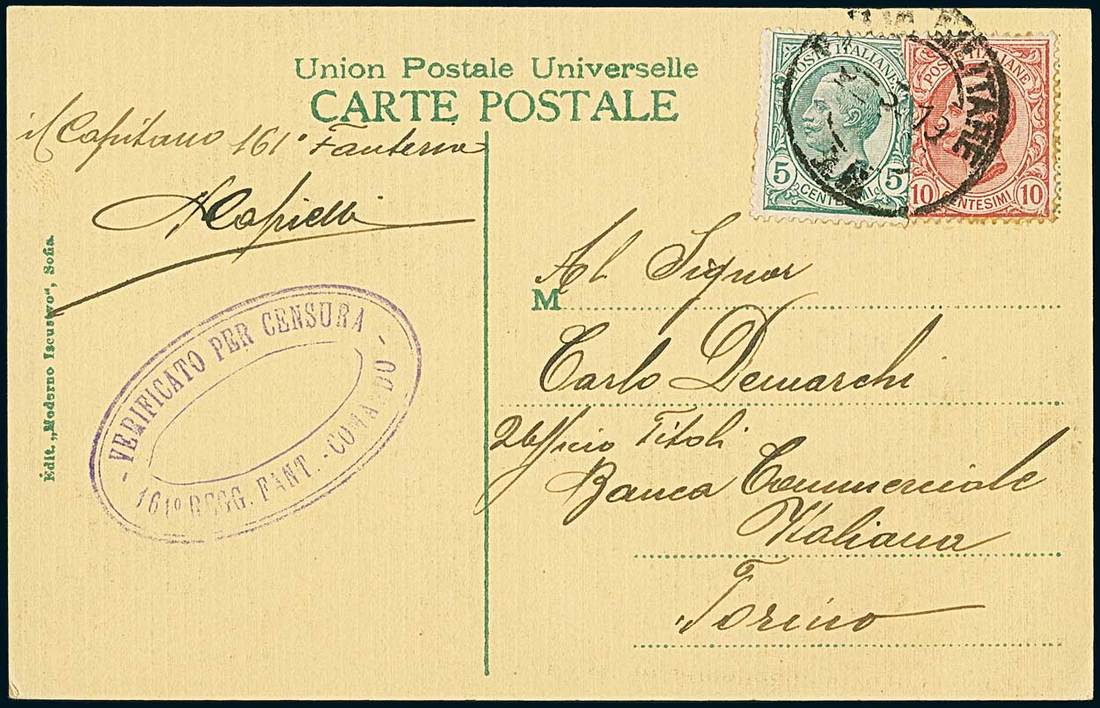 Union Postale Universelle
CARTE POSTALE
il Capitano 161° Fanteria
POSTE ITALIANE
5 CENTESIMI 5
POSTE ITALIANE
10 CENTESIMI 10
Al Signor
M
Carlo Demarchi
Ufficio Titoli
Banca Commerciale
Italiana
Torino
- VERIFICATO PER CENSURA -
161° REGG. FANT. - COMANDO
Édit. „Moderno Iscustvo", Sofia.